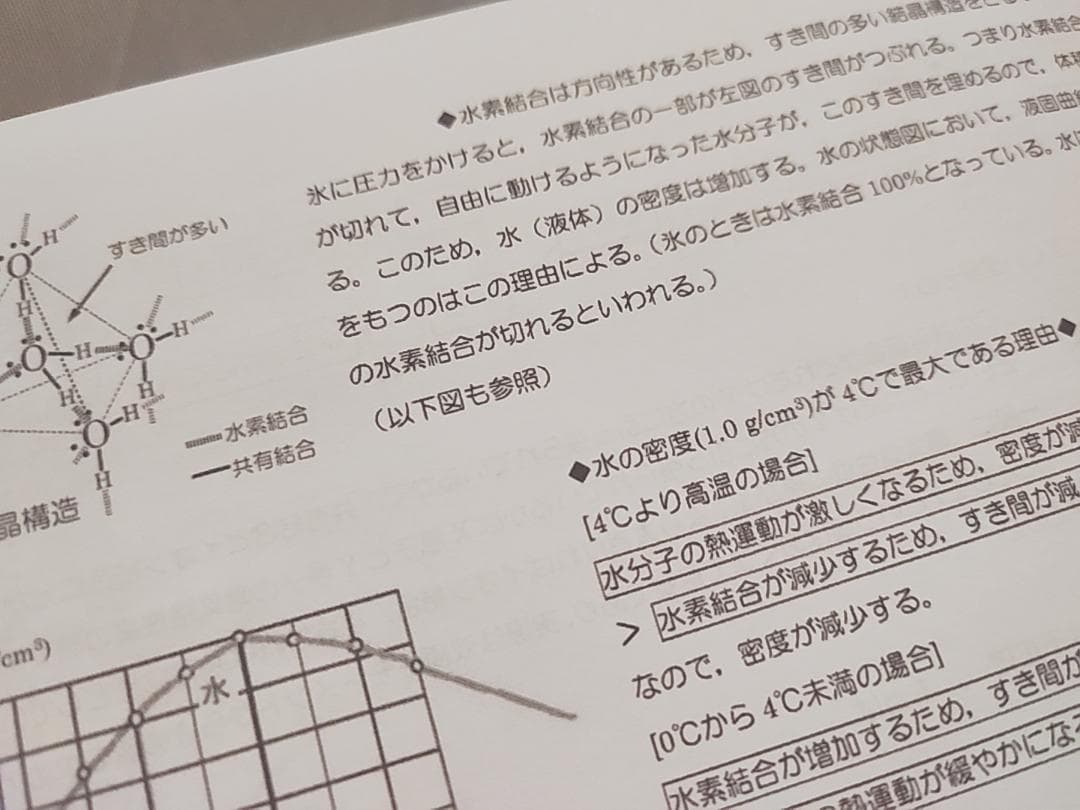 ◆水素結合は方向性があるため，すき間の多い結晶構造をと
氷に圧力をかけると，水素結合の一部が左図のすき間がつぶれる。つまり水素結合
が切れて，自由に動けるようになった水分子が，このすき間を埋めるので，体積
る。このため，水（液体）の密度は増加する。水の状態図において，液固曲線
をもつのはこの理由による。（氷のときは水素結合 100%となっている。水に
の水素結合が切れるといわれる。）
（以下図も参照）
すき間が多い
H
O
H
H
O
H
O
H
H
H
O
H
H
水素結合
共有結合
晶構造
◆水の密度(1.0 g/cm³)が 4℃で最大である理由◆
[4℃より高温の場合]
水分子の熱運動が激しくなるため，密度が減
> 水素結合が減少するため，すき間が減
なので，密度が減少する。
[0℃から 4℃未満の場合]
水素結合が増加するため，すき間が
の熱運動が緩やかにな
/cm³)
水